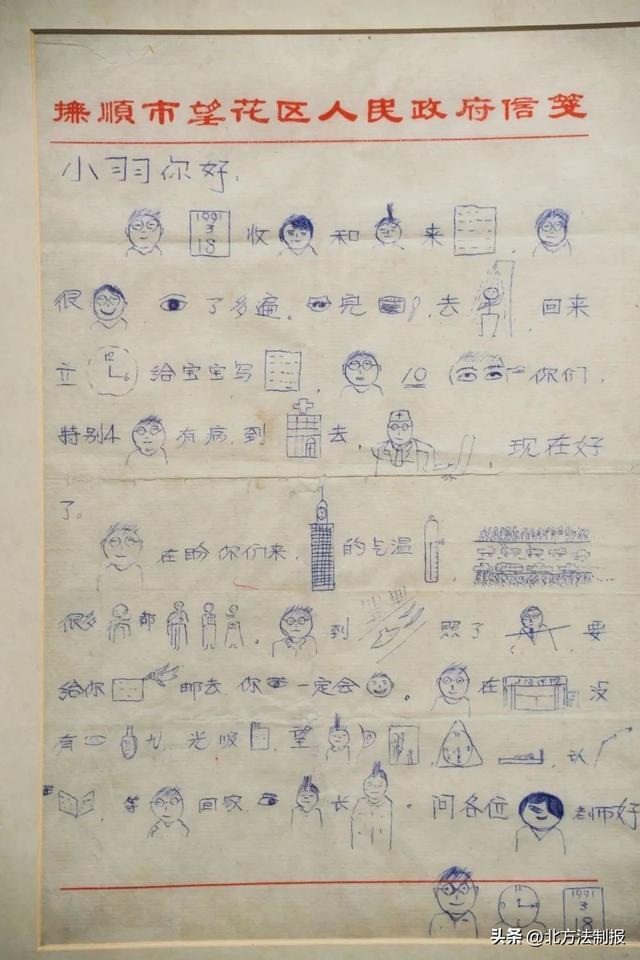 撫順市望花区人民政府信笺
小羽你好：
1991 3 18 收 和 来 ，
很 ， 了多遍。 完 ，去 ，回来
立 12 6 给宝宝写 ， 10 你们，
特别4 有病，到 去， ，现在好
了。
在盼你们来， 的气温 ，
很多 都 。 到 照了 ，要
给你 邮去，你 一定会 。 在 没
有 ， 光吸 ，望 ， ，认
， 等 回家， 长 。问各位 老师好
12 1991 3 18
头条 @北方法制报